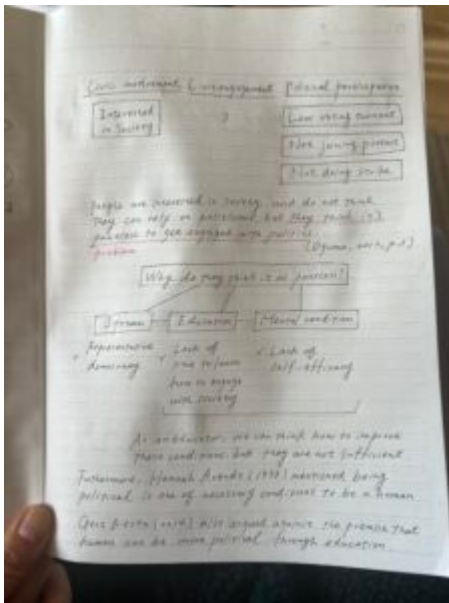 Civic involvement C engagement Political participation
Interested
in Society
?
Low voting turnout
Not joining protest
Not doing strike
People are interested in society, and do not think
they can rely on politicians, but they think it is
pointless to get engaged with politics.
problem
p.1)
Why do they think it is pointless?
System
Education
Mental condition
Representative
democracy
Lack of
time to learn
how to engage
with society
Lack of
self-efficacy
As an educator, we can think how to improve
these conditions, but they are not sufficient
Furthermore, Hannah mentioned being
political is one of necessary conditions to be a human.
Gert Biesta also argued against the premise that
human can be more political through education.